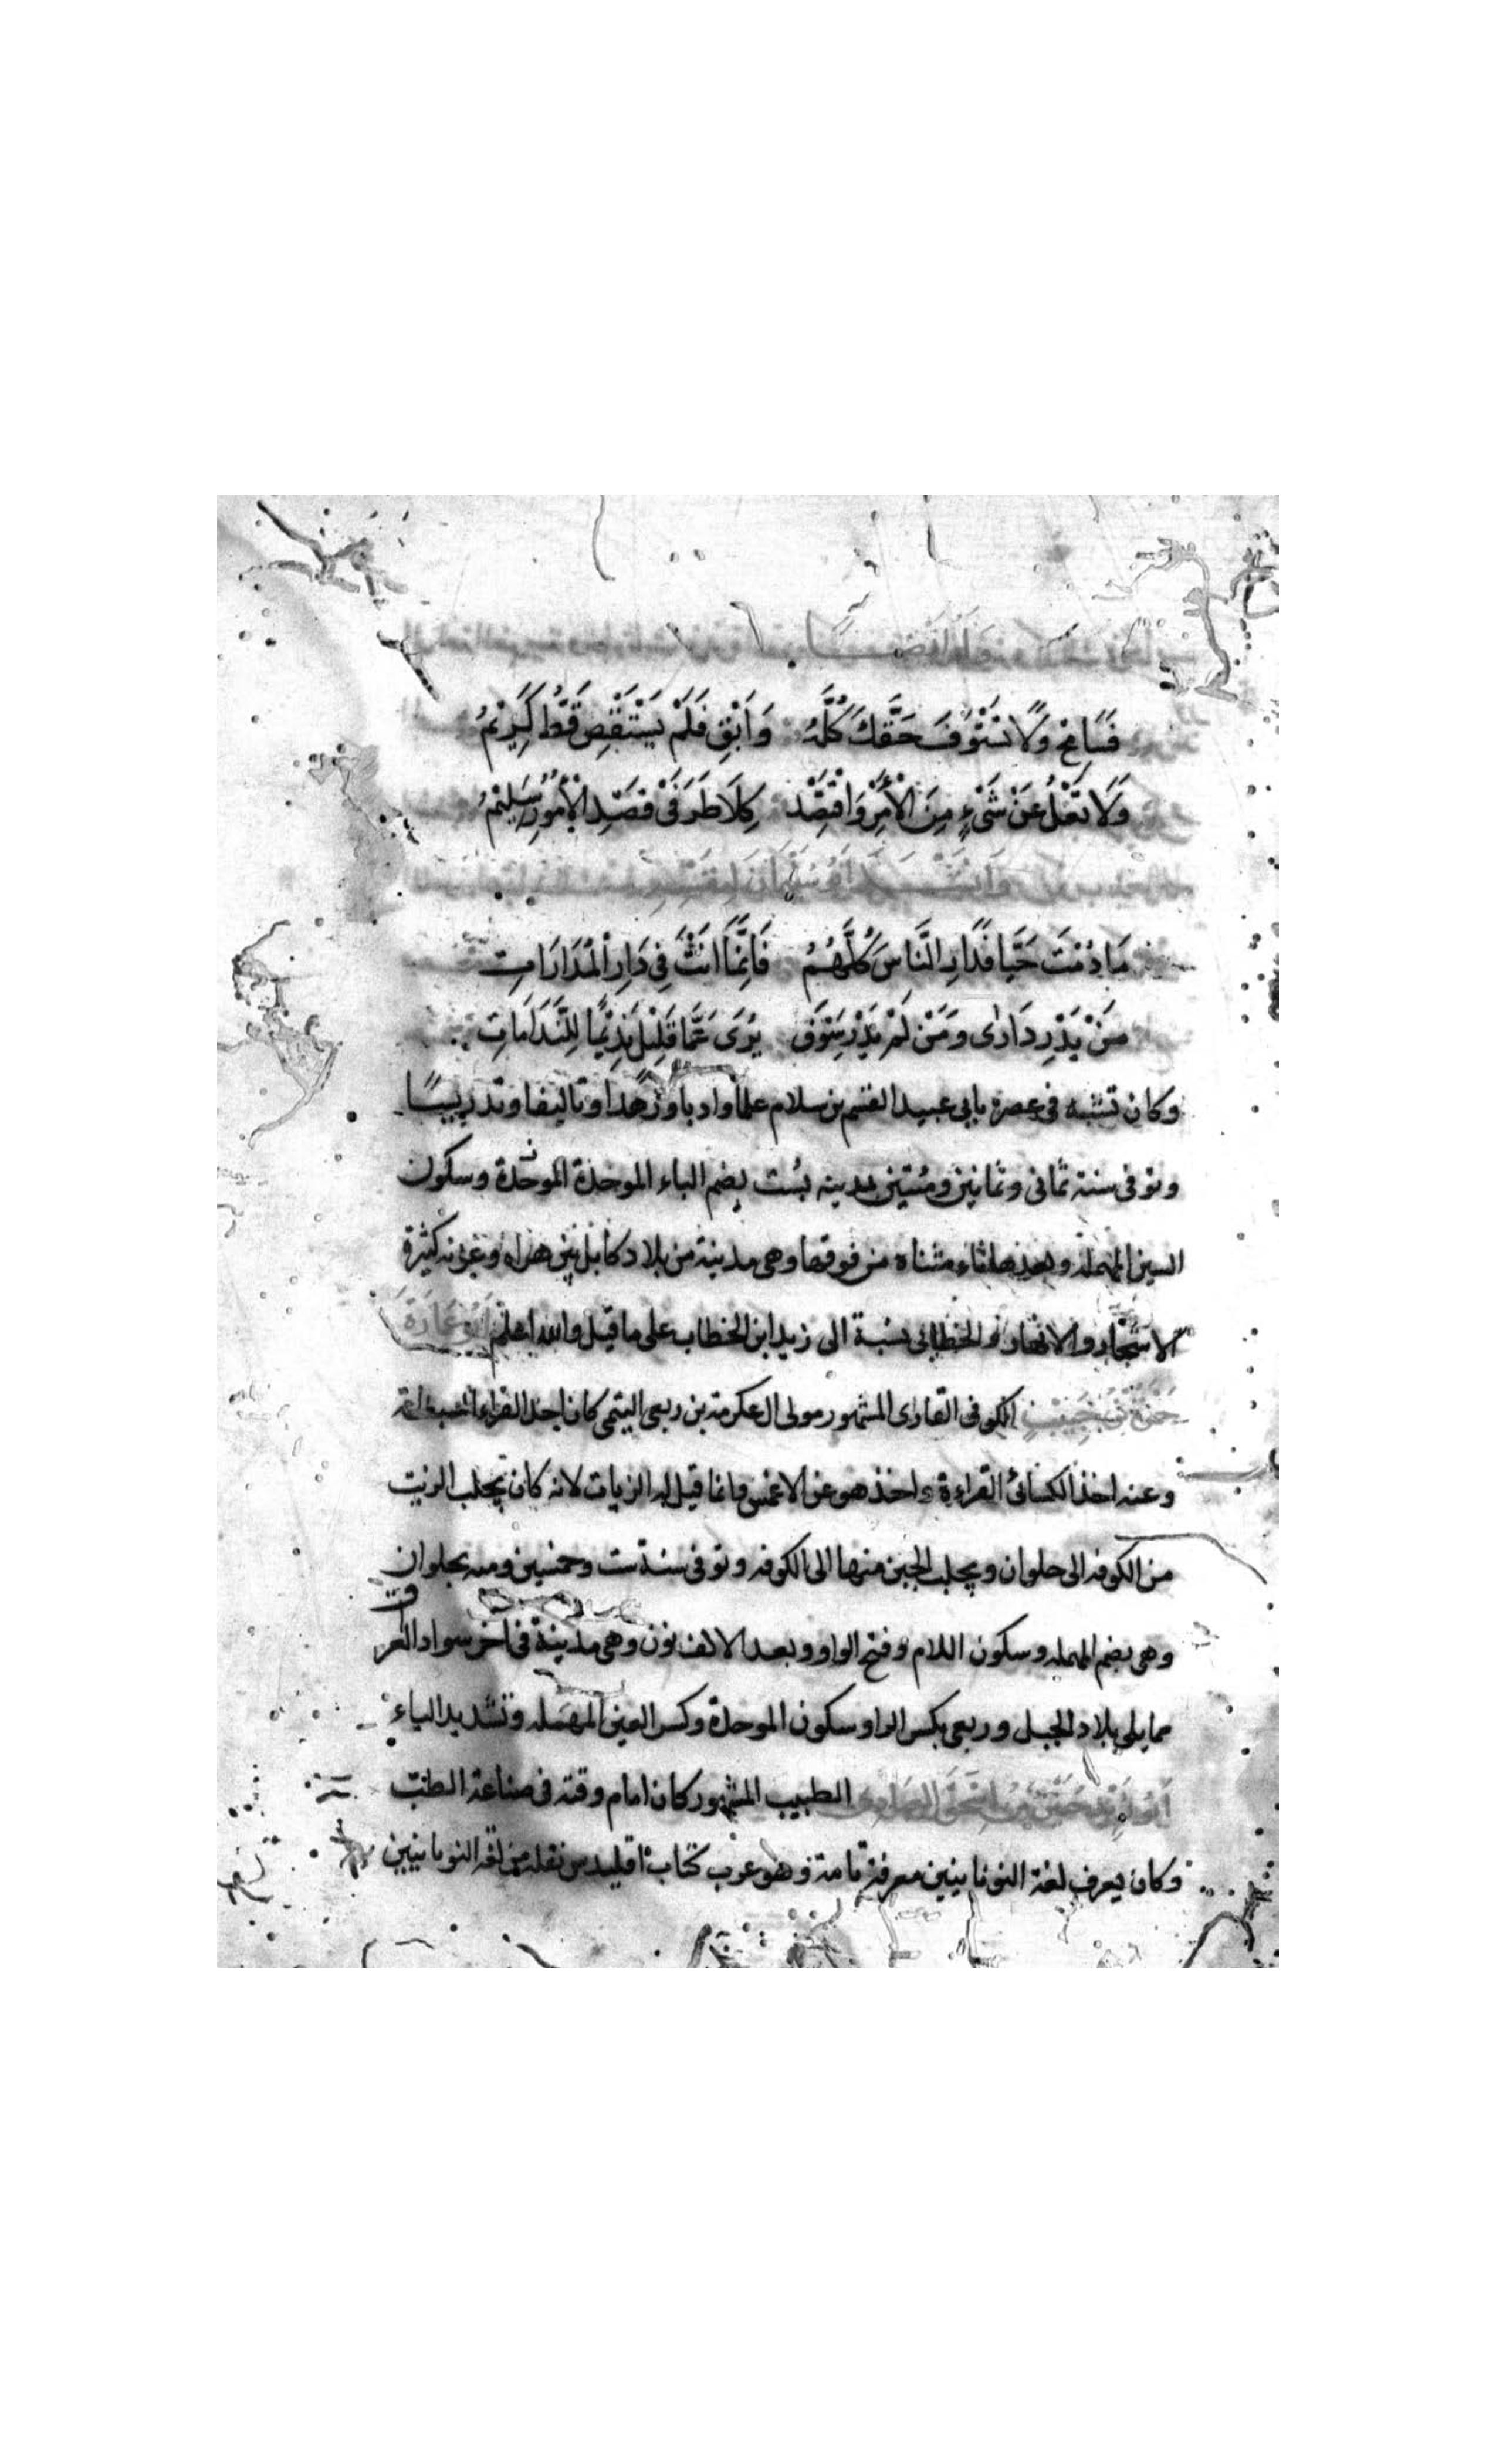 فَسَامِحْ وَلَا تَسْتَوْفِ حَقَّكَ كُلَّهُ وَاَبْقِ فَلَمْ يَسْتَقْصِ قَطُّ كَرِيْمُ
وَلَا تَغْلُ عَنْ شَيْءٍ مِنَ الْاَمْرِ وَاقْتَصِدْ كِلَا طَرَفَيْ قَصْدِ الْاُمُوْرِ سَلِيْمُ
مَا دُمْتَ حَيًّا فَدَارِ النَّاسَ كُلَّهُمُ فَاِنَّمَا اَنْتَ فِي دَارِ الْمُدَارَاتِ
مَنْ يَدْرِ دَارٰى وَمَنْ لَمْ يَدْرِ سَوْفَ يُرَى عَمَّا قَلِيْلٍ نَدِيْمًا لِلنَّدَامَاتِ
وكان تشبه في عصره بابي عبيد القسم بن سلام علما وادبا وزهدا وتاليفا وتدريسا
وتوفي سنة ثماني وثمانين بمدينه بست بضم الباء الموحدة الموحدة وسكون
السين المهمله وبعدها تاء مثناه من فوقها وهي مدينة من بلاد كابل بين هراه وغزنه كثيرة
الاشجار والانهار والخطابي نسبة الى زيد ابن الخطاب على ما قيل والله اعلم اَبُو عُمَارَةَ
حَمْزَةُ بْنُ حَبِيْبٍ الكوفي القاري المشهور مولى ال عكرمة بن ربعي التيمي كان احد القراء السبعة
وعنه اخذ الكسائي القراءة واخذ هو عن الاعمش وانما قيل له الزيات لانه كان يجلب الزيت
من الكوفه الى حلوان ويجلب الجبن منها الى الكوفه وتوفي سنة ست وخمسين ومئه بحلوان
وهي بضم المهمله وسكون اللام وفتح الواو وبعد الالف نون وهي مدينة في اخر سواد العراق
مما يلي بلاد الجبل وربعي بكسر الرا وسكون الموحدة وكسر العين المهمله وتشديد الياء
اَبُو زَيْدٍ حُنَيْنُ بْنُ اِسْحٰقَ الطبيب المشهور كان امام وقته في صناعة الطب
وكان يعرف لغة اليونانيين معرفة تامة وهو عرب كتاب اقليدس نقله من لغة اليونانيين